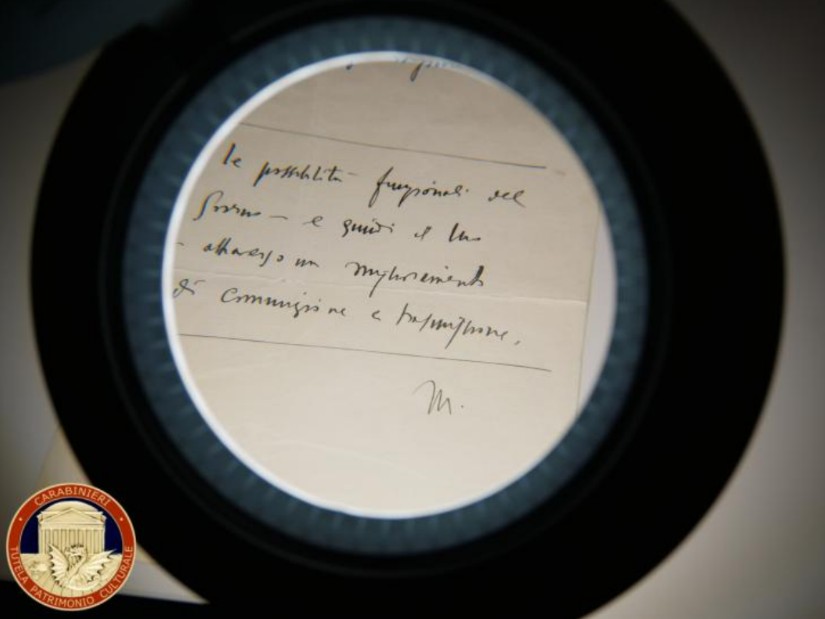 le possibilità funzionali del
e quindi il
attraverso un miglioramento
di comunizione e trasmissione.
M.
CARABINIERI
TUTELA PATRIMONIO CULTURALE